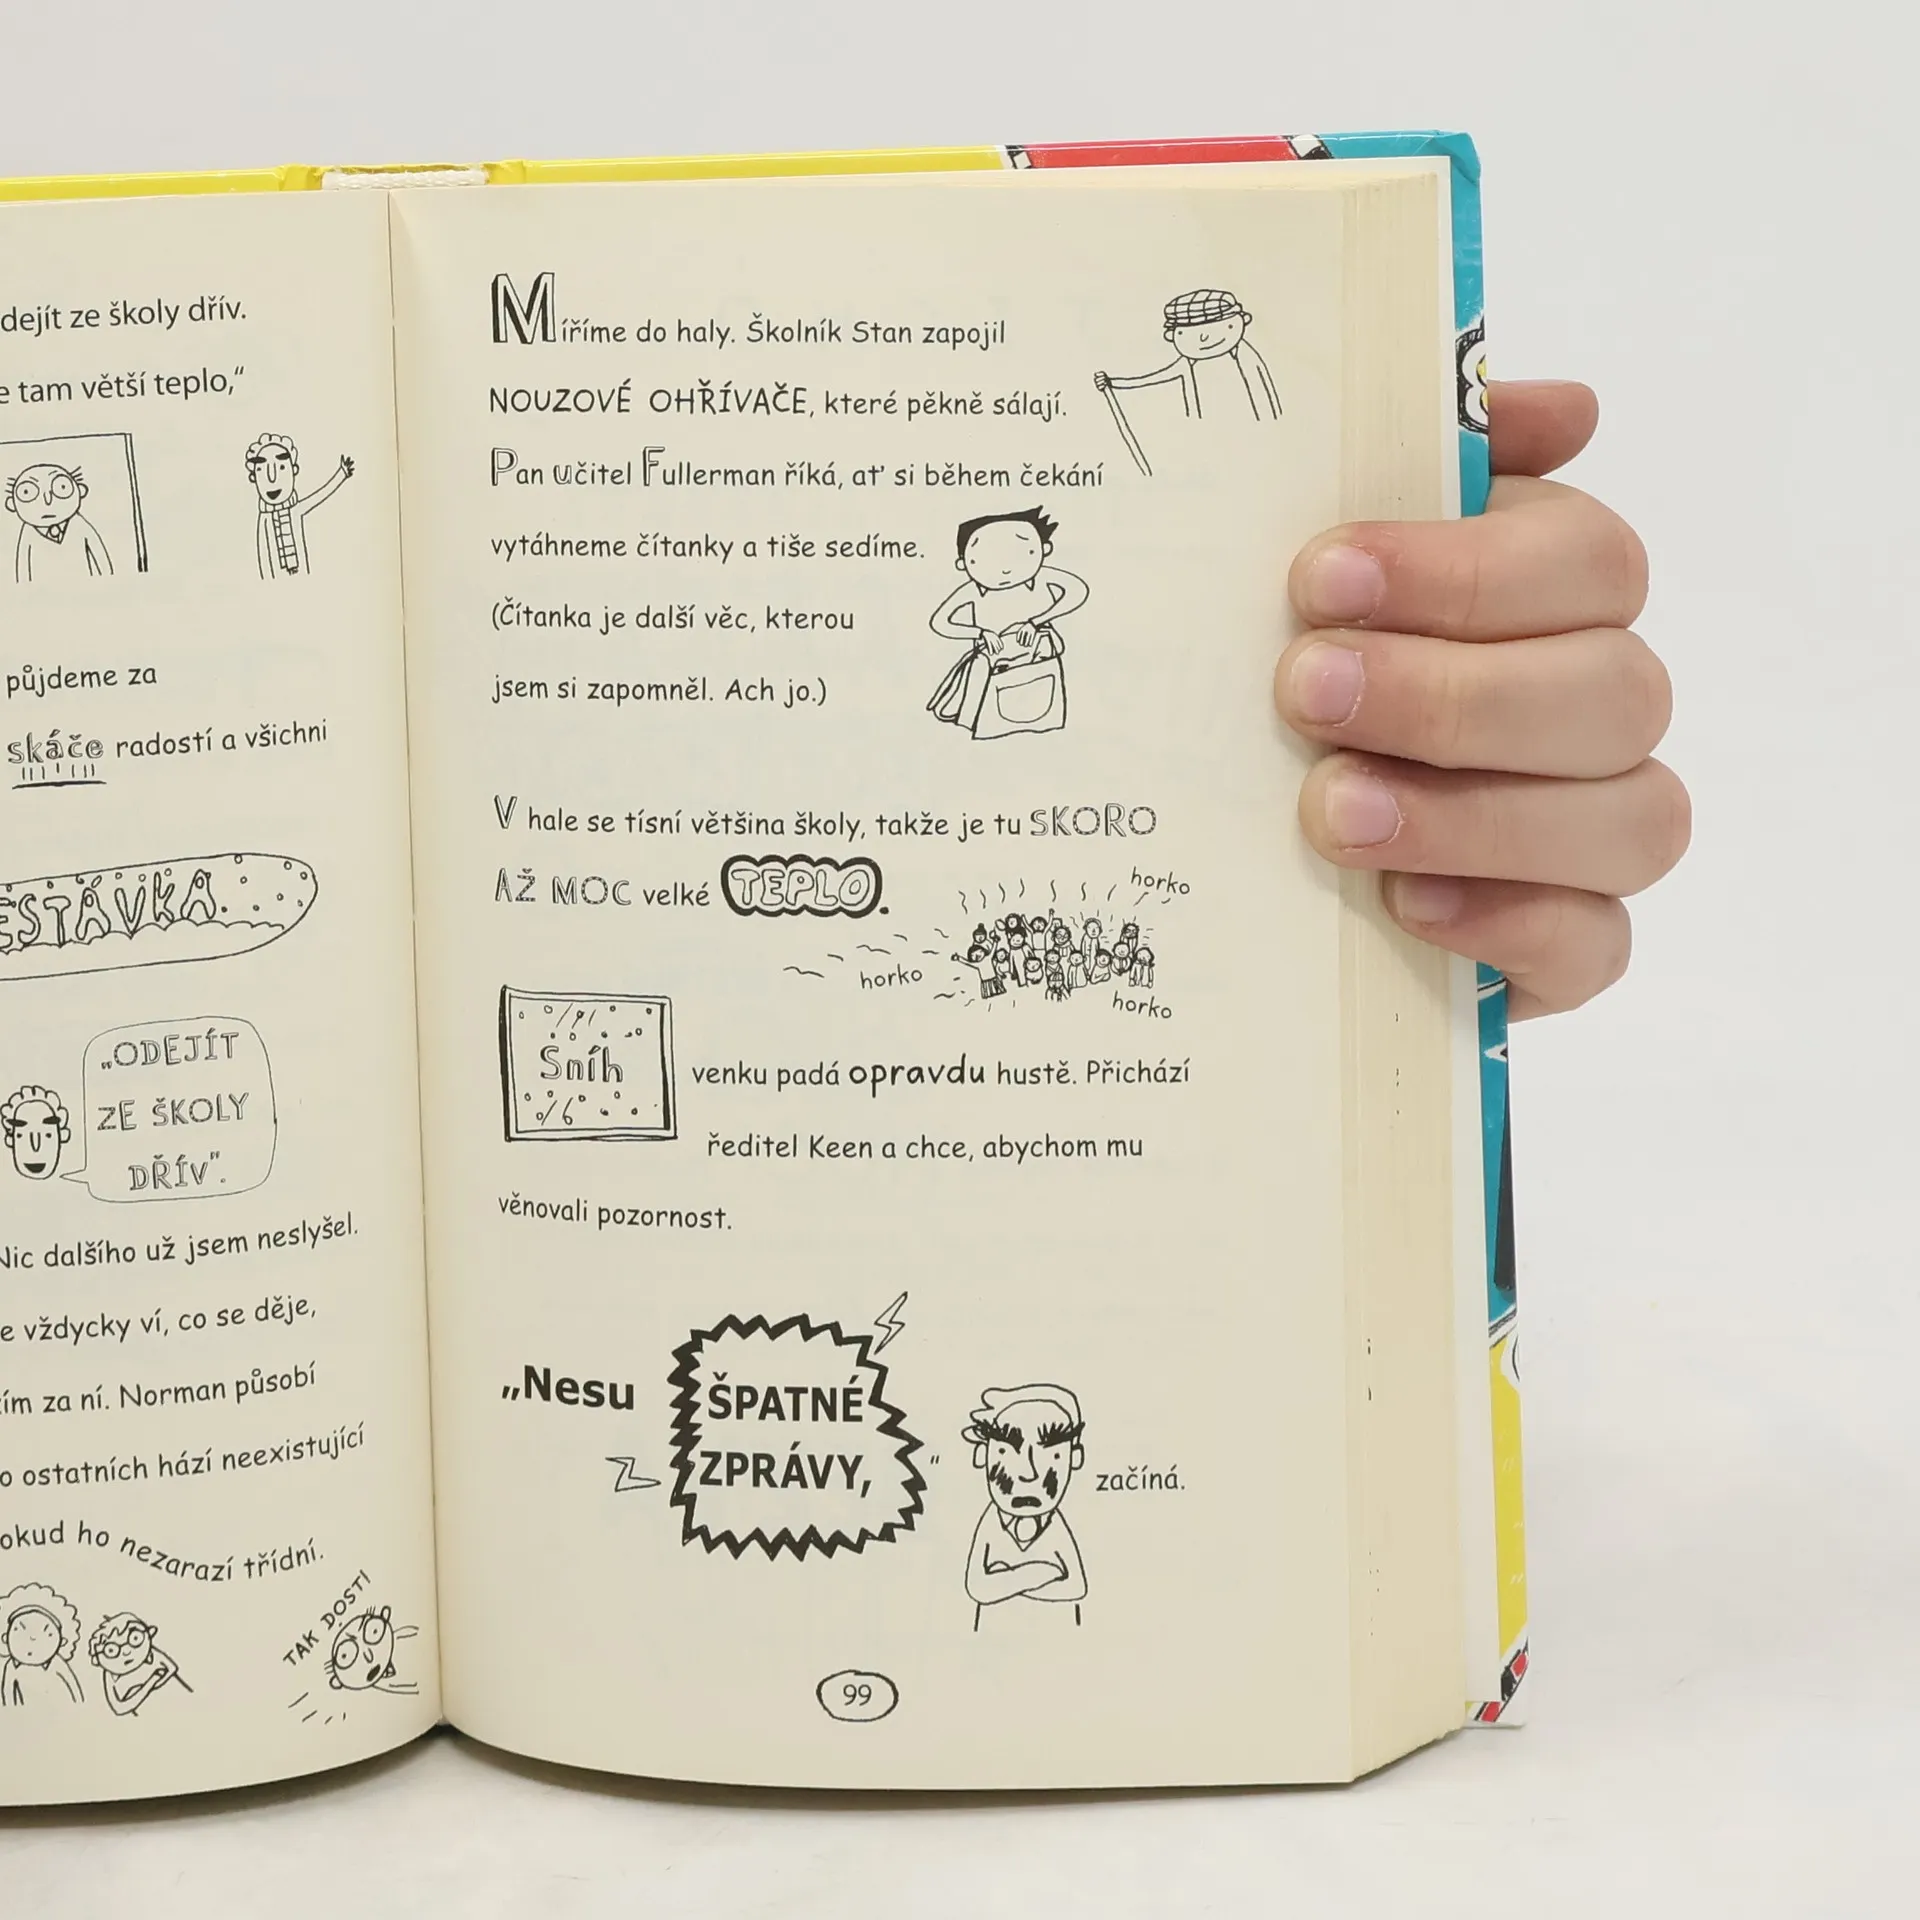 dejít ze školy dřív.
e tam větší teplo,“
půjdeme za
skáče radostí a všichni
„ODEJÍT
ZE ŠKOLY
DŘÍV“.
Nic dalšího už jsem neslyšel.
e vždycky ví, co se děje,
ím za ní. Norman působí
o ostatních hází neexistující
okud ho nezarazí třídní.
TAK DOST!
Míříme do haly. Školník Stan zapojil
NOUZOVÉ OHŘÍVAČE, které pěkně sálají.
Pan učitel Fullerman říká, ať si během čekání
vytáhneme čítanky a tiše sedíme.
(Čítanka je další věc, kterou
jsem si zapomněl. Ach jo.)
V hale se tísní většina školy, takže je tu SKORO
AŽ MOC velké TEPLO.
horko
horko
horko
Sníh venku padá opravdu hustě. Přichází
ředitel Keen a chce, abychom mu
věnovali pozornost.
„Nesu ŠPATNÉ
ZPRÁVY,“ začíná.
99